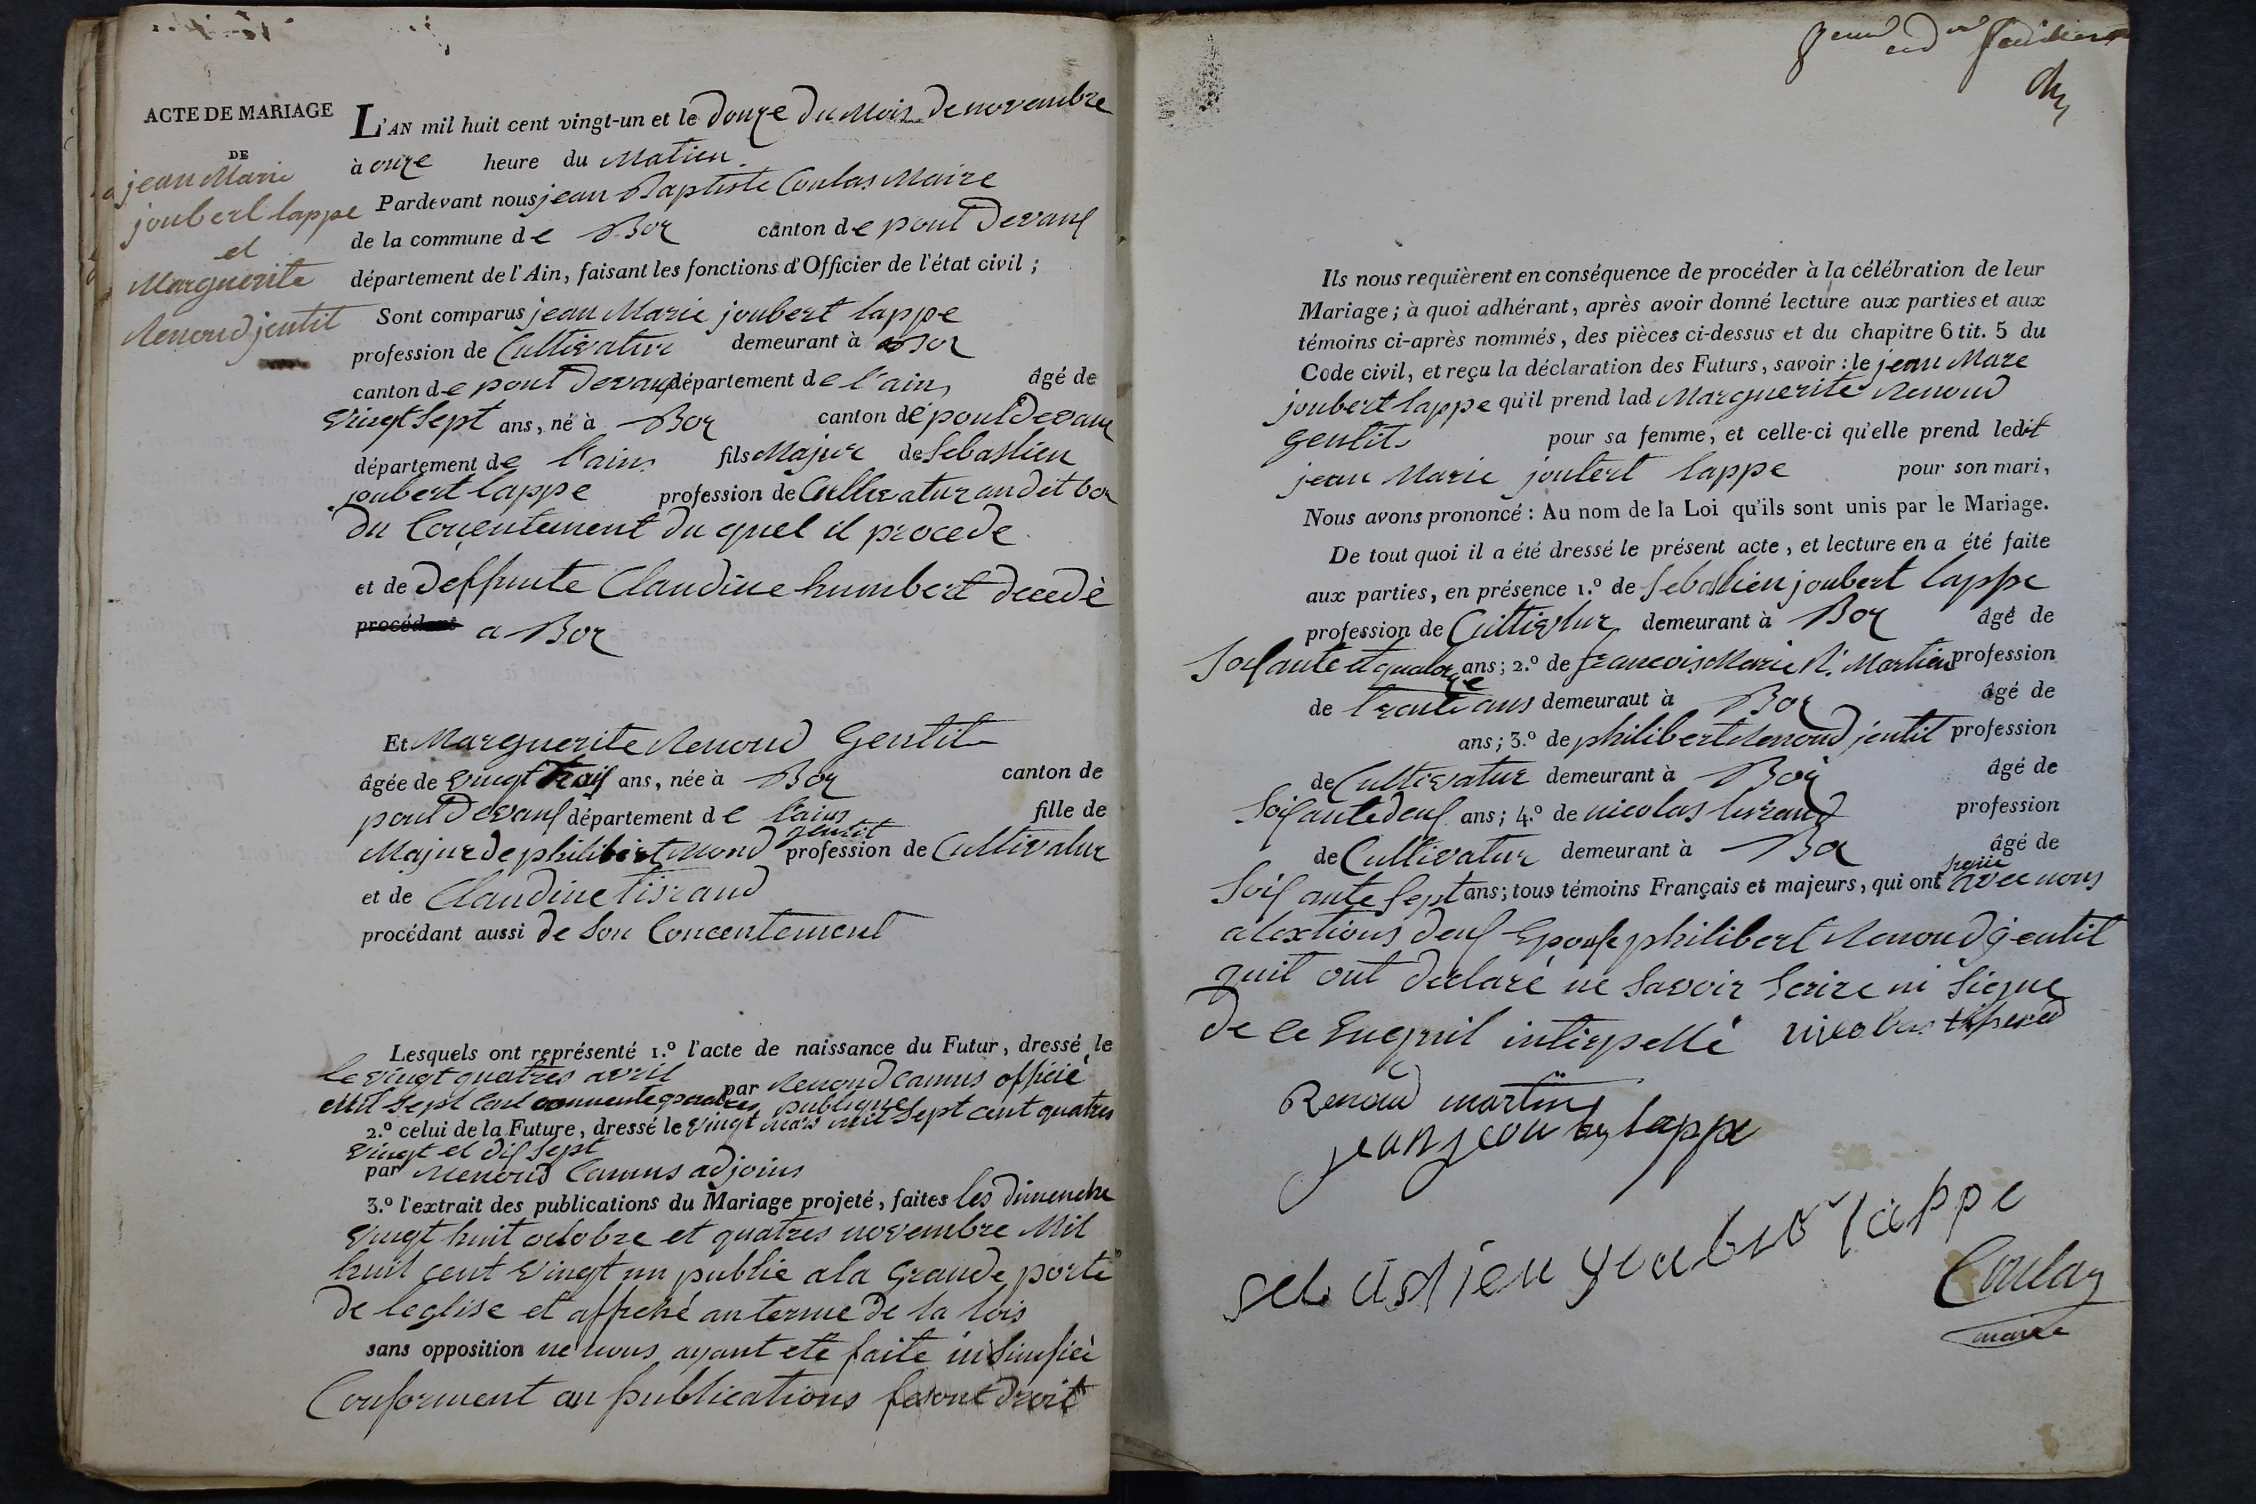 ACTE DE MARIAGE
DE
jean Marie
joubert lappe
et
Marguerite
Renoud jentil
L'AN mil huit cent vingt-un et le douze du Mois de novembre
à onze heure du Matien
Pardevant nous jean Baptiste Coulas Maire
de la commune de Boz canton de pont devaux
département de l'Ain, faisant les fonctions d'Officier de l'état civil ;
Sont comparus jean Marie joubert lappe
profession de Cultivatur demeurant à Boz
canton de pont devaux département de l'ain, âgé de
vingt Sept ans, né à Boz canton de pont devaux
département de l'ain fils Majur de Sebastien
joubert lappe profession de Cultivatur audit boz
du Consentement du quel il procede
et de deffunte Claudine humbert decedè
procédant a Boz
Et Marguerite Renoud Gentil
âgée de vingt trois ans, née à Boz canton de
pont Devaux département de l'ain fille de
gentil
Majur de philibert Renoud profession de Cultivatur
et de Claudine tisraud
procédant aussi de son Concentement
Lesquels ont représenté 1.º l'acte de naissance du Futur, dressé le
le vingt quatres avril
par Renoud Camus officié
Mil Sept Cent publique
2.º celui de la Future, dressé le vingt mars mil sept cent quatres
vingt et dix sept
par Renoud Camus adjoins
3.º l'extrait des publications du Mariage projeté, faites les dimenche
vingt huit octobre et quatres novembre Mil
huit cent vingt un publie a la Grande porte
de leglise et affiché au terme de la lois
sans opposition ne nous ayant eté faite ni Sinifiéè
Conforment au publications droit
Ils nous requièrent en conséquence de procéder à la célébration de leur
Mariage ; à quoi adhérant, après avoir donné lecture aux parties et aux
témoins ci-après nommés, des pièces ci-dessus et du chapitre 6 tit. 5 du
Code civil, et reçu la déclaration des Futurs, savoir : le jean Mare
joubert lappe qu'il prend lad Marguerite Renoud
gentil pour sa femme, et celle-ci qu'elle prend ledit
jean Marie joubert lappe pour son mari,
Nous avons prononcé : Au nom de la Loi qu'ils sont unis par le Mariage.
De tout quoi il a été dressé le présent acte, et lecture en a été faite
aux parties, en présence 1.º de Sebastien joubert lappe
profession de Cultivtur demeurant à Boz âgé de
Soixante et quatorze ans ; 2.º de francois Marie R. Martien profession
de trente ans demeuraut à Boz âgé de
ans ; 3.º de philibert Renoud jentil profession
de Cultivatur demeurant à Boz âgé de
Soixante deux ans ; 4.º de nicolas tisraud profession
de Cultivatur demeurant à Boz âgé de
Soixante Sept ans ; tous témoins Français et majeurs, qui ont signe avec nous
alextions deux Epouse philibert Renoud gentil
quil ont declaré ne savoir Ecrire ni Signe
de ce Enquil interpellé nicolas
Renoud martin
jean joubert lappe
sebastien lappe
Coulas
maire